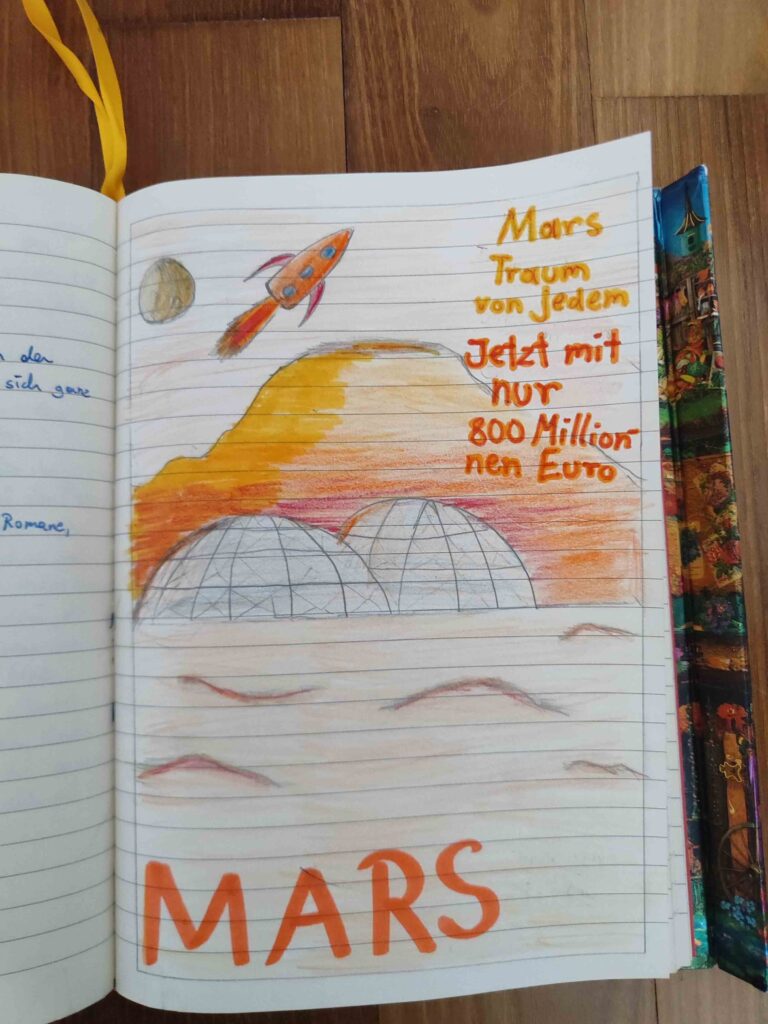 n der
sich ganz
Romane,
Mars
Traum
von jedem
Jetzt mit
nur
800 Million-
nen Euro
MARS